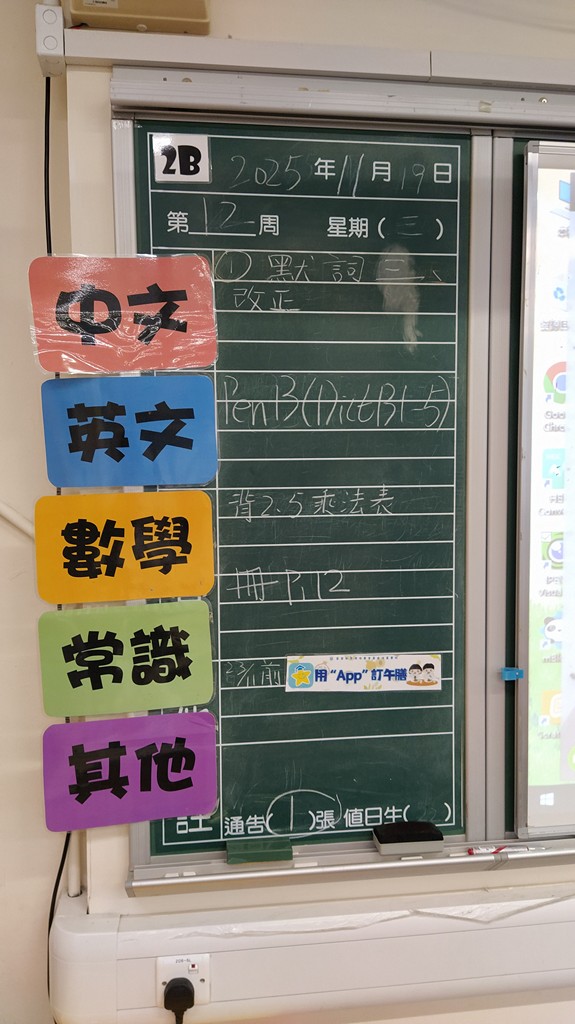 2B 2025年11月19日
第12周 星期(三)
中文
① 默詞三、
改正
英文
PenB(DictB1-5)
數學
背2、5乘法表
常識
冊 P.12
前
用“App”訂午膳
其他
註 通告(1)張 值日生( )